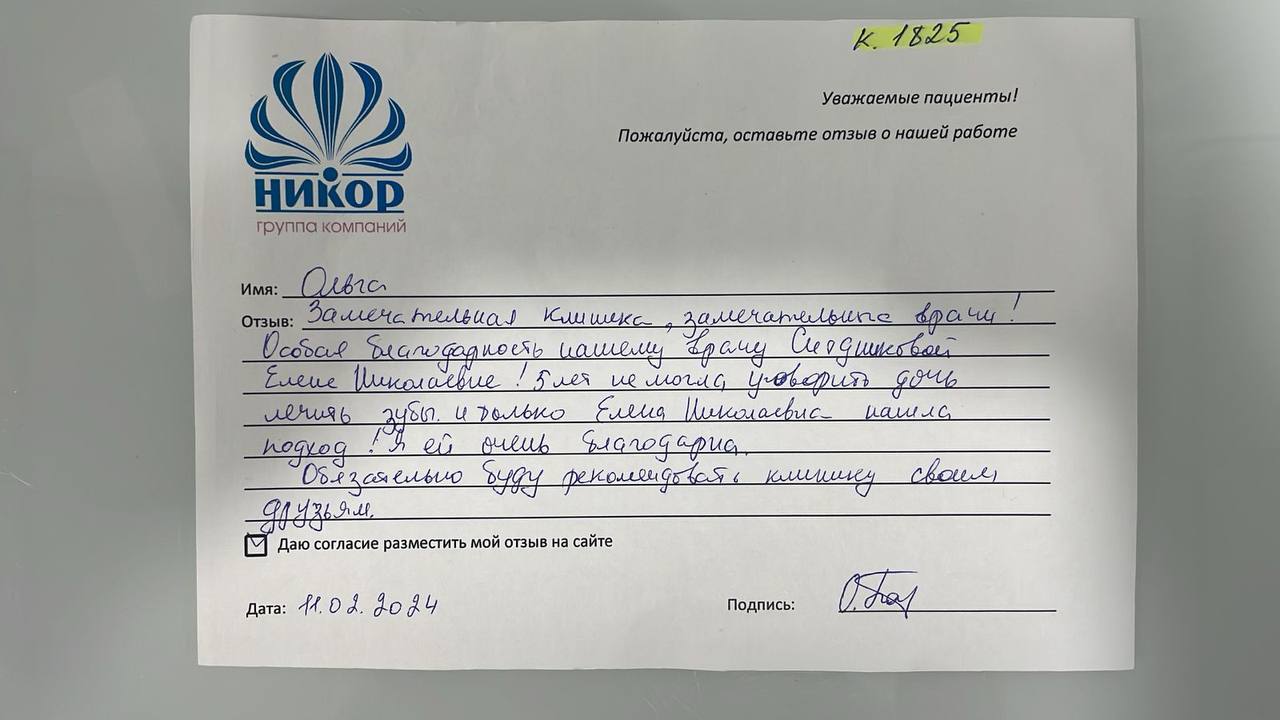 К. 1825
Уважаемые пациенты!
Пожалуйста, оставьте отзыв о нашей работе
НИКОР
группа компаний
Имя: Ольга
Отзыв: Замечательная клиника, замечательные врачи!
Особая благодарность нашему врачу Ситдиковой
Елене Николаевне! 5 лет не могла уговорить дочь
лечить зубы. и только Елена Николаевна нашла
подход! Я ей очень благодарна.
Обязательно буду рекомендовать клинику своим
друзьям.
Даю согласие разместить мой отзыв на сайте
Дата: 11.02.2024
Подпись: